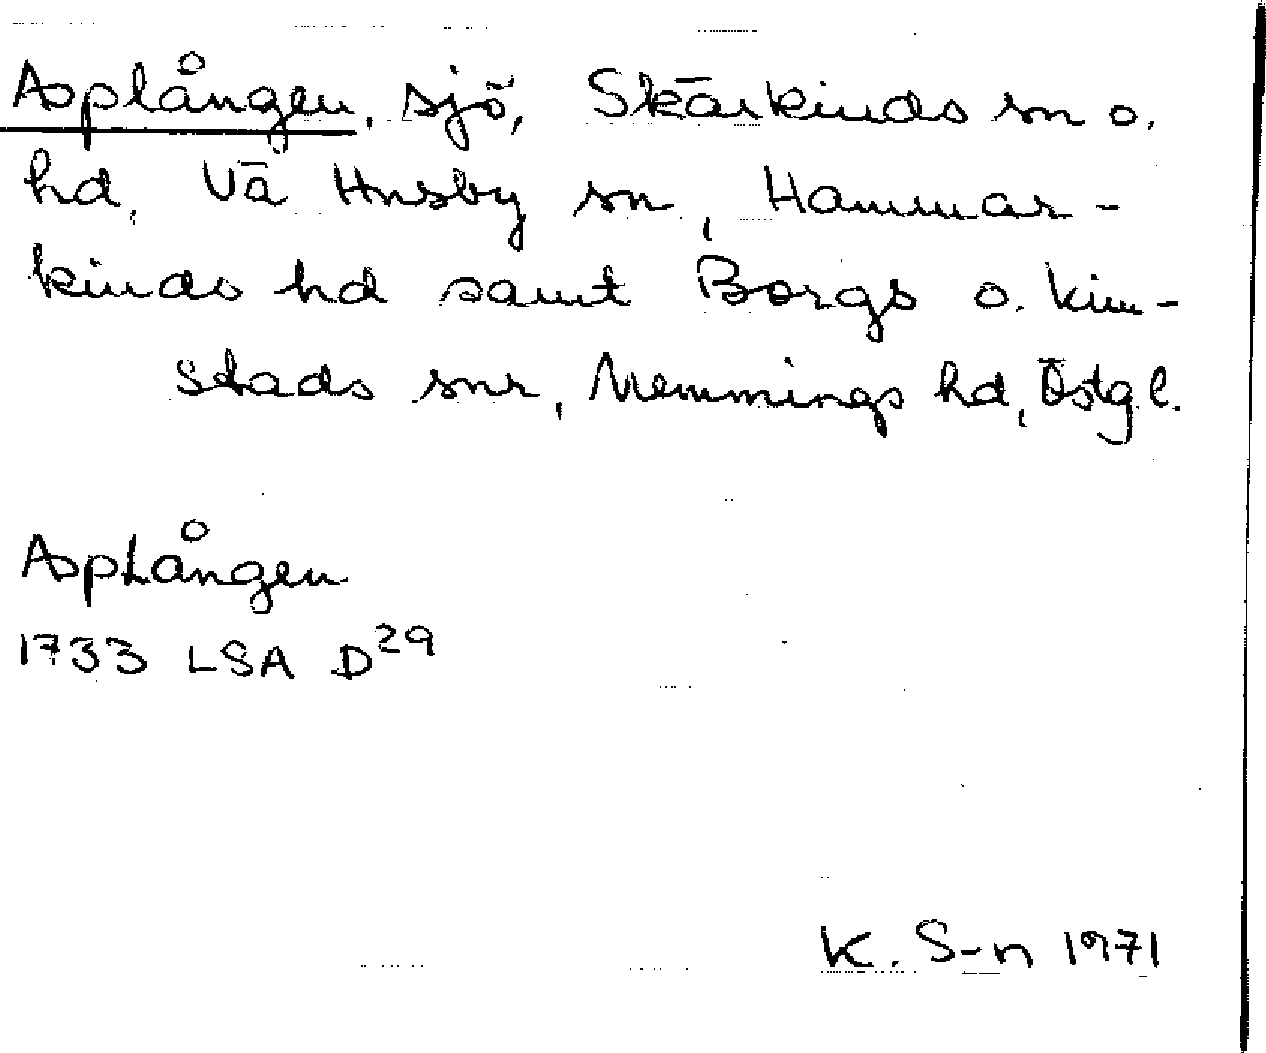 Asplången, sjö, Skärkinds sn o.
hd, Vä Husby sn, Hammar-
kinds hd samt Borgs o. Kim-
stads snr, Memmings hd, Östgl.
Asplången
1733 LSA D29
K. S-n 1971